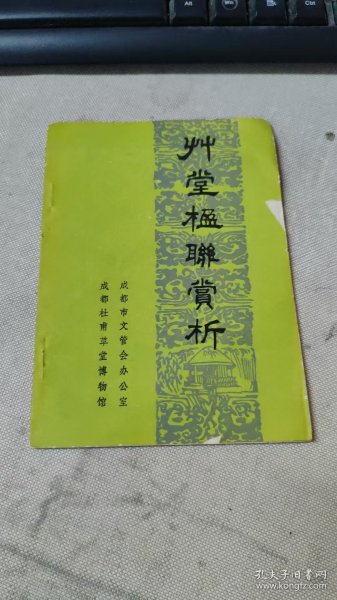 艸堂楹聯賞析
成都市文管会办公室
成都杜甫草堂博物馆
Alt
Win
Alt
Ctrl
孔夫子旧书网
www.kongfz.com